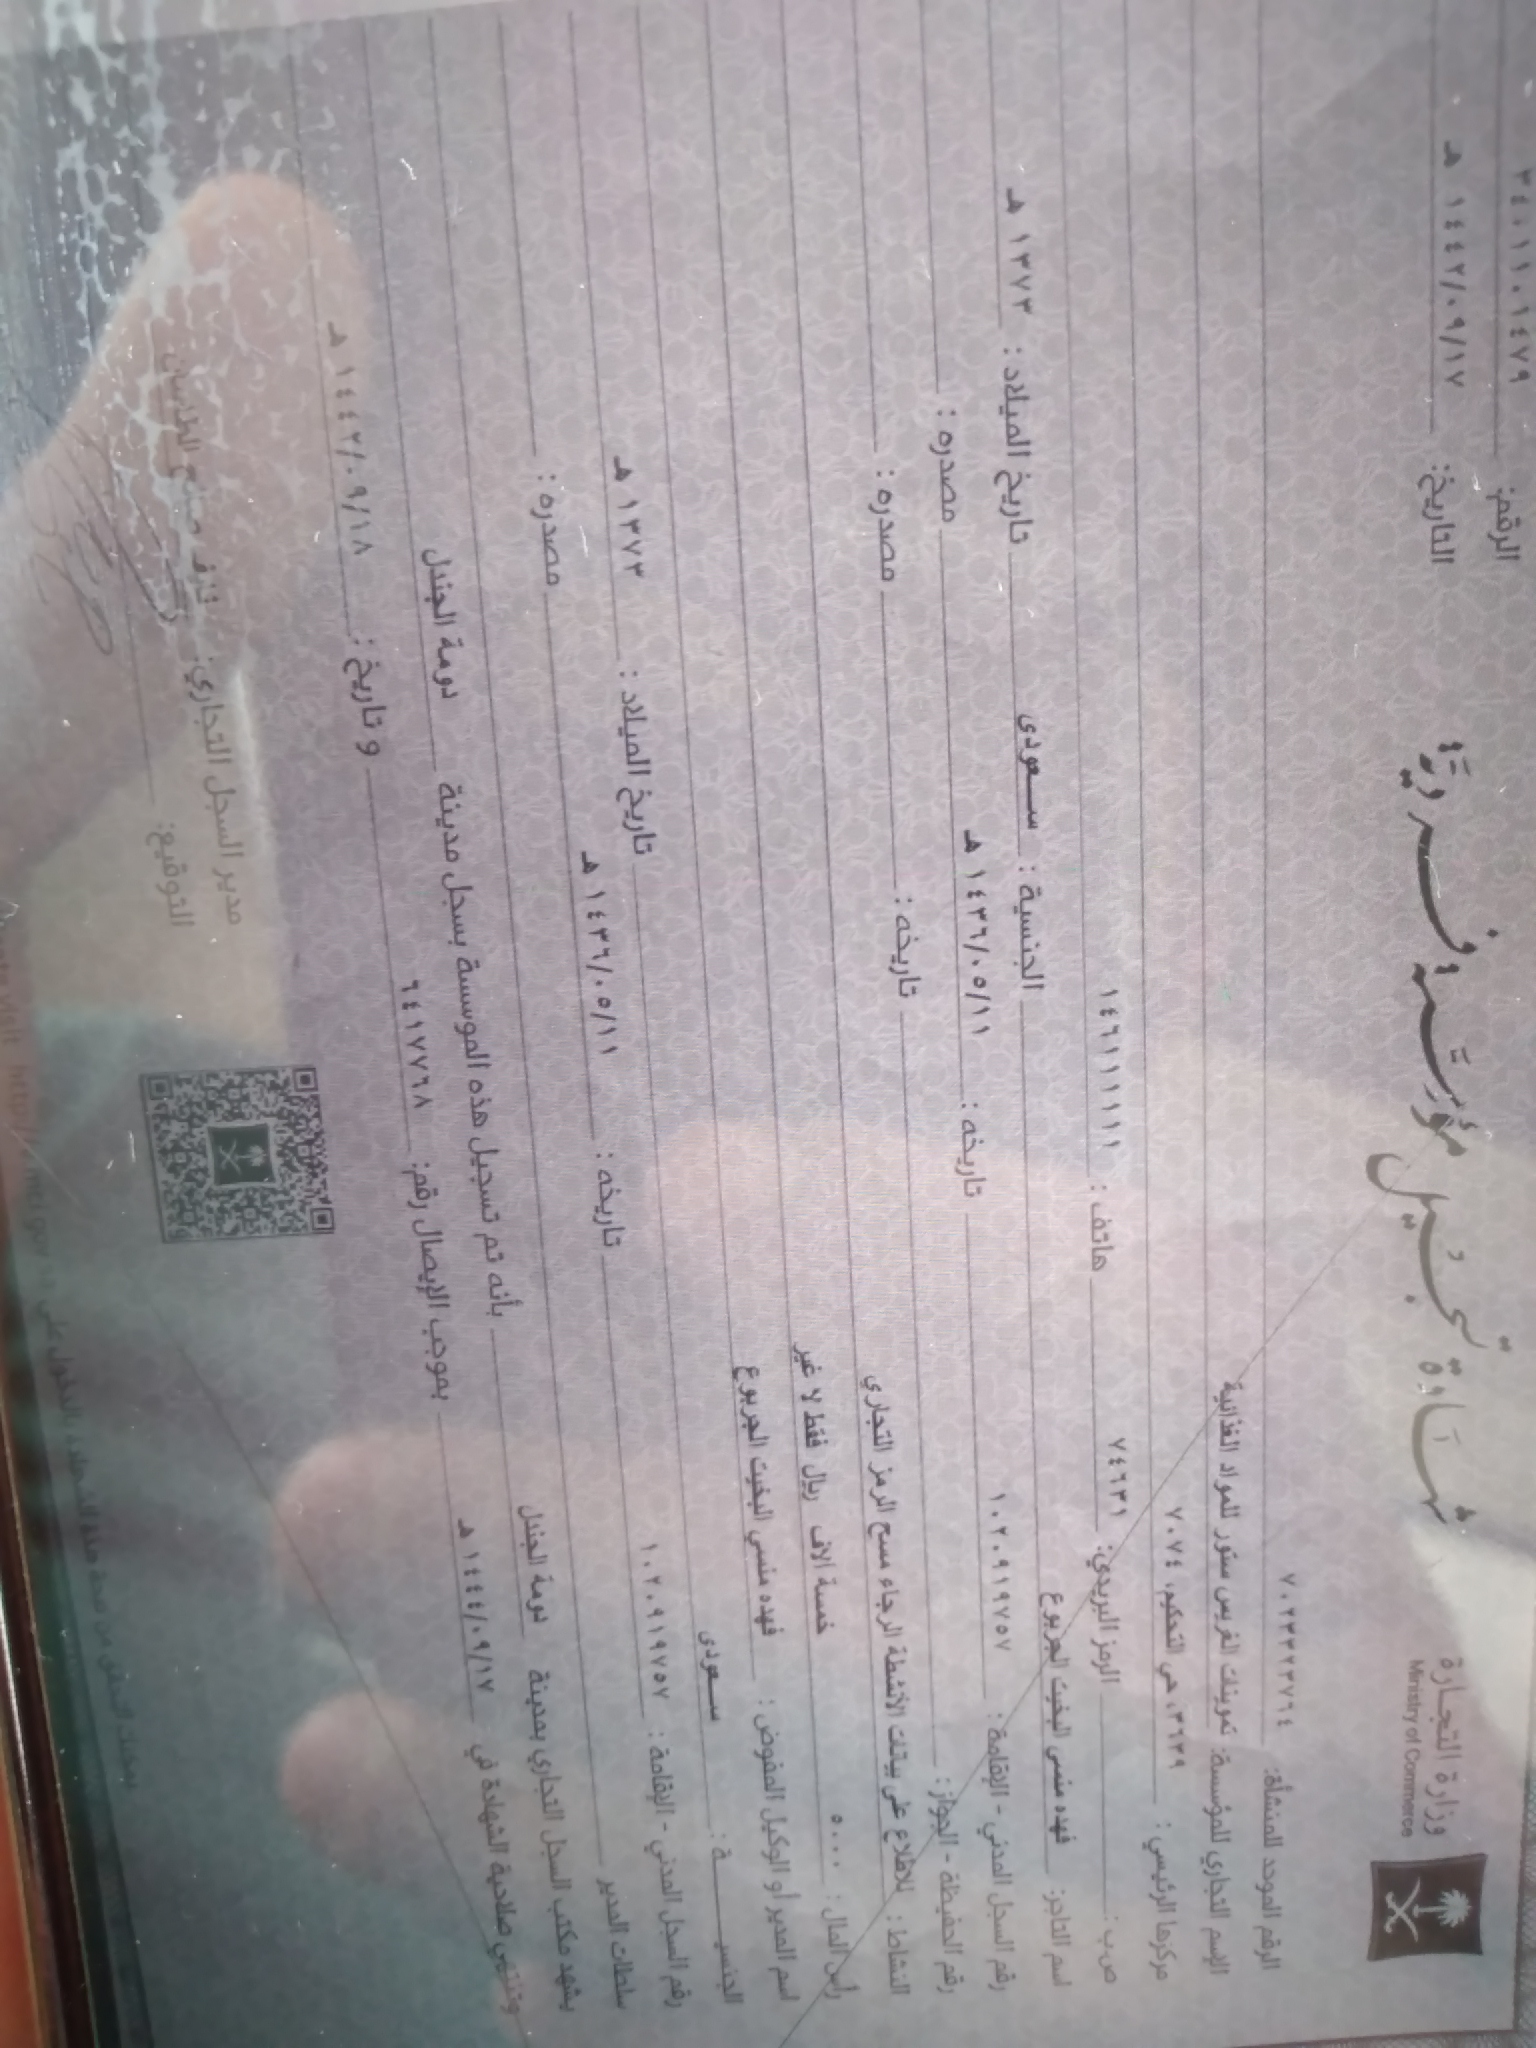 وزارة التجارة
Ministry of Commerce
شهادة تسجيل مؤسسة فردية
الرقم: ٣٤٠١١٠١٤٧٩
التاريخ: ١٤٤٢/٠٩/١٧ هـ
الرقم الموحد للمنشأة: ٧٠٢٣٢٢٣٧٦٤
الإسم التجاري للمؤسسة: تموينات الغريس ستور للمواد الغذائية
مركزها الرئيسي: ٣٦٣٩، حي التحكيم، ٧٠٧٤
ص.ب: الرمز البريدي: ٧٤٦٣١ هاتف: ١٤٦١١١١١١
اسم التاجر: فهده منسي البخيت الجربوع الجنسية: سعودى تاريخ الميلاد: ١٣٧٣ هـ
رقم السجل المدني - الإقامة: ١٠٢٠٩١٩٧٥٧ تاريخه: ١٤٣٦/٠٥/١١ هـ مصدره:
رقم الحفيظة - الجواز: تاريخه: مصدره:
النشاط: للاطلاع على بيانات الأنشطة الرجاء مسح الرمز التجاري
رأس المال: ٥٠٠٠ خمسة آلاف ريال فقط لا غير
اسم المدير أو الوكيل المفوض: فهده منسي البخيت الجربوع
الجنسية: سعودى
رقم السجل المدني - الإقامة: ١٠٢٠٩١٩٧٥٧ تاريخه: ١٤٣٦/٠٥/١١ هـ تاريخ الميلاد: ١٣٧٣ هـ
سلطات المدير مصدره:
يشهد مكتب السجل التجاري بمدينة دومة الجندل بأنه تم تسجيل هذه الموسسة بسجل مدينة دومة الجندل
وتنتهي صلاحية الشهادة في ١٤٤٤/٠٩/١٧ هـ بموجب الإيصال رقم: ٦٤١٧٧٦٨ و تاريخ: ١٤٤٢/٠٩/١٨ هـ
مدير السجل التجاري:
التوقيع: